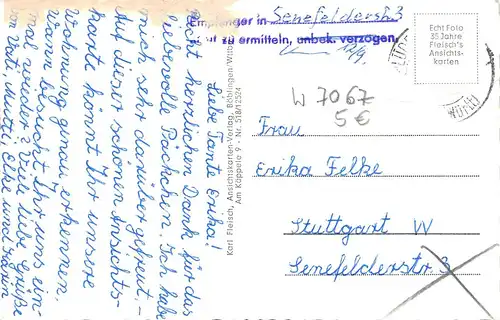 Liebe Tante Erika!
Recht herzlichen Dank für das
liebevolle Päckchen. Ich habe
mich sehr darüber gefreut.
Auf dieser schönen Ansichts-
karte könnt Ihr unsere
Wohnung genau erkennen.
Wann besucht Ihr uns ein-
mal wieder? Viele liebe Grüße
von Vati, Mutti, Elke und Karin
Karl Fleisch, Ansichtskarten-Verlag, Böblingen/Württ.
Am Käppele 9 - Nr. 518/12524
Empfänger in Senefelderstr. 3
zu ermitteln, unbek. verzogen.
12/9.
Echt Foto
35 Jahre
Fleisch's
Ansichts-
karten
W 7067
5 €
Frau
Erika Felke
Stuttgart W
Senefelderstr. 3